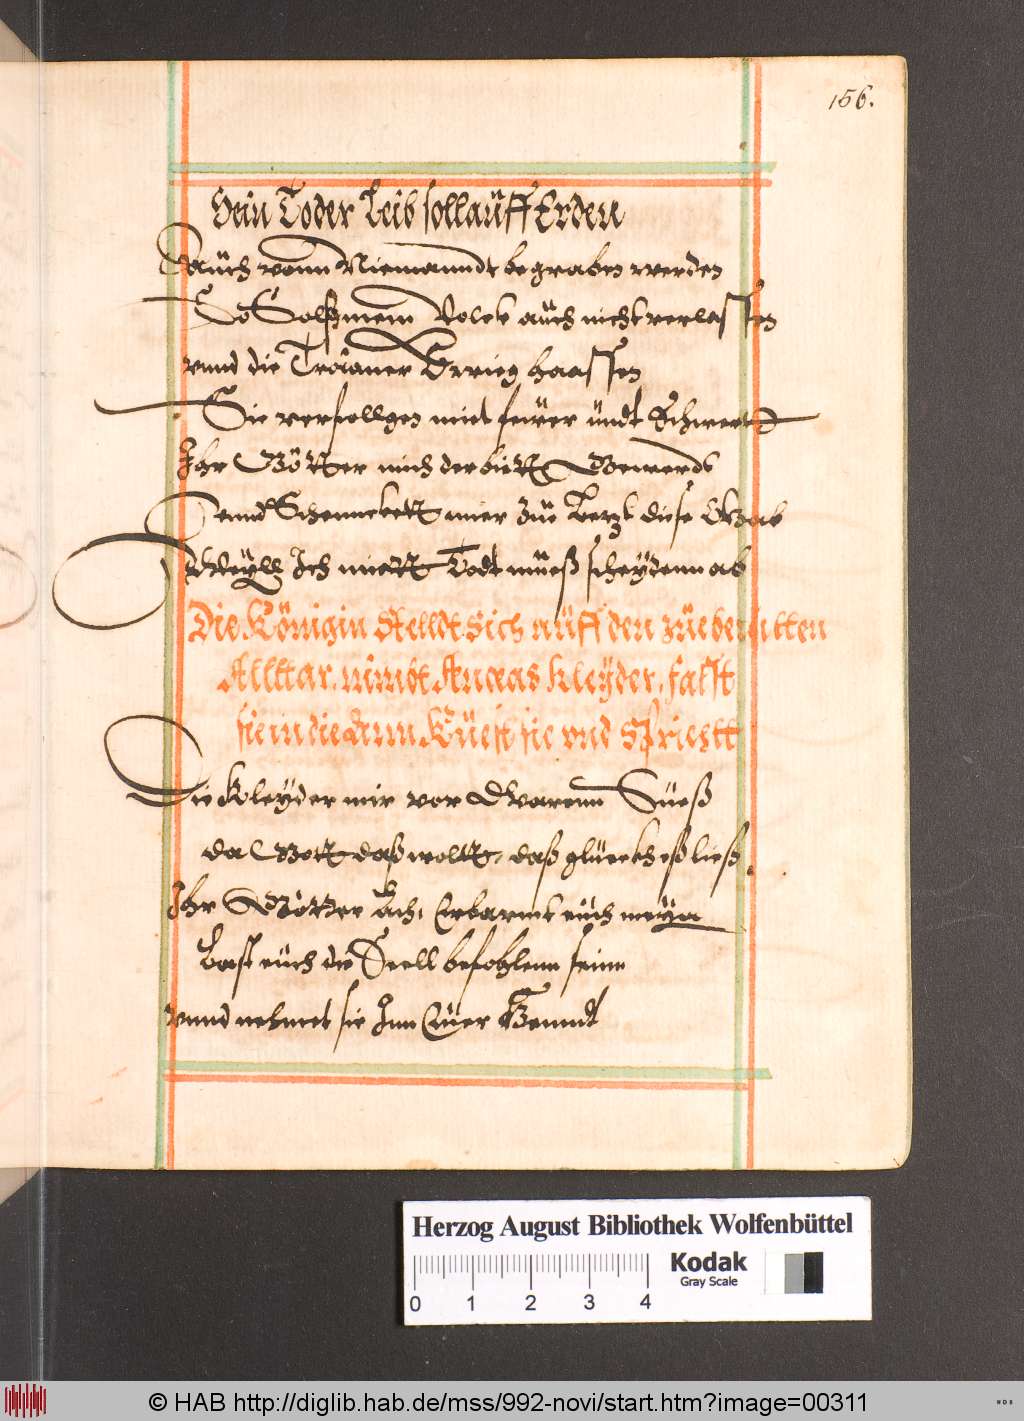 156.
Sein Toder Leib soll aüff Erden
Aüch vonn Niemanndt begraben werden
So Solß mein Volck aüch nicht verlassen
vnnd die Troianer Krrieg haassen
Sie verfollgen mit feüer ündt Schwertt
Ihr Götter mich der bitt Gewerdt
vnnd Schennckett mier züe Letzt diese Gaab
Weÿll Ich mitt Todt müeß scheÿdenn ab
Die Königin stelldt Sich aüff den züebereitten
Alltar, nimbt Aneas Kleÿder, fasst
sie in die Arm Küest sie vnd Sprichtt
Die Kleÿder mir vor Warenn Süeß
da Gott daß wollt, daß glüeckh eß ließ.
Ihr Götter Ach, Erbarmt eüch meÿn
Last eüch die Seell befohlenn seinn
vnnd nehmet sie Inn Eüer Henndt
Herzog August Bibliothek Wolfenbüttel
Kodak
Gray Scale
0 1 2 3 4
© HAB http://diglib.hab.de/mss/992-novi/start.htm?image=00311